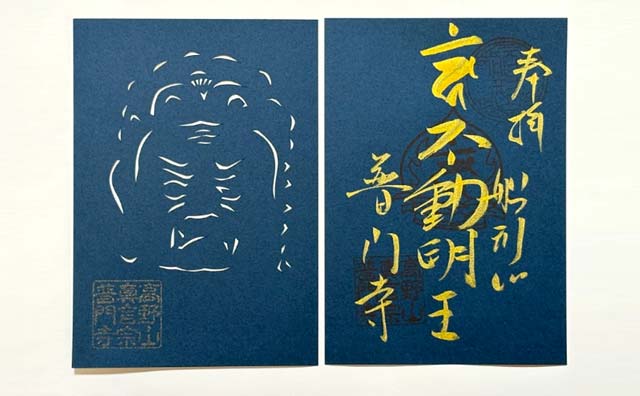 高野山
真言宗
普門寺
奉拝
船形山
不動明王
普門寺